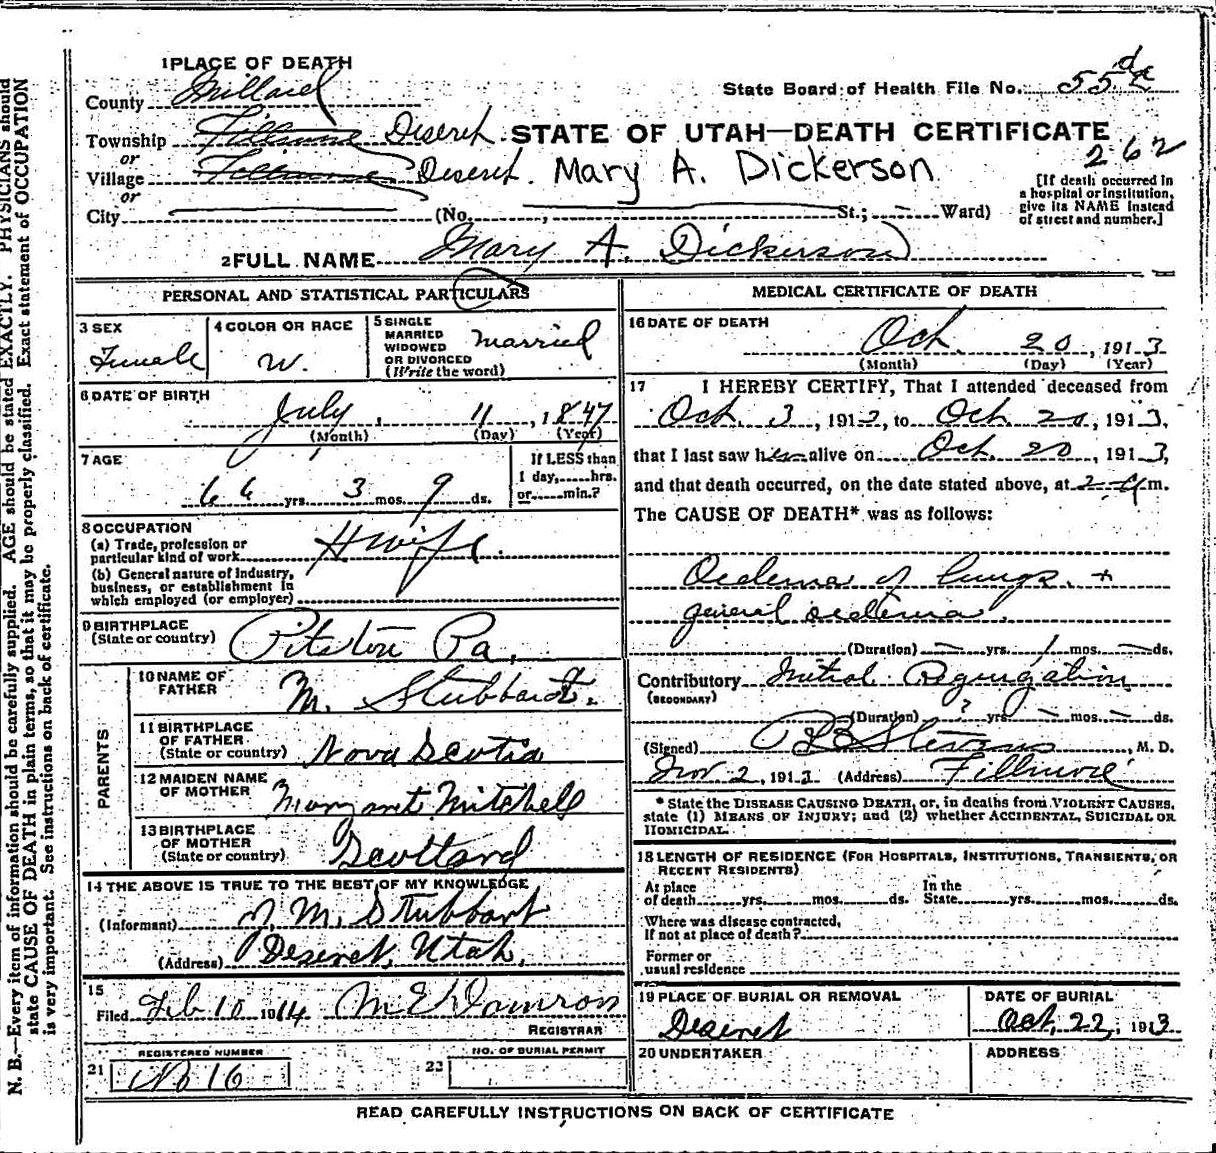 N. B.—Every item of information should be carefully supplied. AGE should be stated EXACTLY. PHYSICIANS should
state CAUSE OF DEATH in plain terms, so that it may be properly classified. Exact statement of OCCUPATION
is very important. See instructions on back of certificate.
1 PLACE OF DEATH
County Millard
State Board of Health File No. 55
Township Fillmore Deseret STATE OF UTAH—DEATH CERTIFICATE
or
262
Village Fillmore Deseret. Mary A. Dickerson
or
City (No. , St.; Ward)
[If death occurred in
a hospital or institution,
give its NAME instead
of street and number.]
2 FULL NAME Mary A. Dickerson
PERSONAL AND STATISTICAL PARTICULARS
3 SEX
Female
4 COLOR OR RACE
W.
5 SINGLE
MARRIED
WIDOWED
OR DIVORCED
(Write the word)
Married
6 DATE OF BIRTH
July, 11, 1847
(Month) (Day) (Year)
7 AGE
66 yrs. 3 mos. 9 ds.
If LESS than
1 day, hrs.
or min.?
8 OCCUPATION
(a) Trade, profession or
particular kind of work H wife
(b) General nature of industry,
business, or establishment in
which employed (or employer)
9 BIRTHPLACE
(State or country) Pitston Pa,
PARENTS
10 NAME OF
FATHER M. Stubbardt.
11 BIRTHPLACE
OF FATHER
(State or country) Nova Scotia
12 MAIDEN NAME
OF MOTHER Margaret Mitchell
13 BIRTHPLACE
OF MOTHER
(State or country) Scottland
14 THE ABOVE IS TRUE TO THE BEST OF MY KNOWLEDGE
(Informant) J. M. Stubbart
(Address) Deseret, Utah,
15
Filed Feb 10 1914 M E Damron
REGISTRAR
REGISTERED NUMBER
21 No 16
NO. OF BURIAL PERMIT
22
MEDICAL CERTIFICATE OF DEATH
16 DATE OF DEATH
Oct. 20, 1913
(Month) (Day) (Year)
17 I HEREBY CERTIFY, That I attended deceased from
Oct. 3, 1913, to Oct 20, 1913,
that I last saw her alive on Oct. 20, 1913,
and that death occurred, on the date stated above, at 2 a m.
The CAUSE OF DEATH* was as follows:
Oedema of lungs. +
general oedema.
(Duration) — yrs. 1 mos. — ds.
Contributory Mitral Regurgitation
(SECONDARY)
(Duration) ? yrs — mos. — ds.
(Signed) Stevens, M. D.
Nov 2, 1913 (Address) Fillmore
* State the DISEASE CAUSING DEATH, or, in deaths from VIOLENT CAUSES,
state (1) MEANS OF INJURY; and (2) whether ACCIDENTAL, SUICIDAL OR
HOMICIDAL.
18 LENGTH OF RESIDENCE (FOR HOSPITALS, INSTITUTIONS, TRANSIENTS, OR
RECENT RESIDENTS)
At place
of death yrs. mos. ds.
In the
State yrs. mos. ds.
Where was disease contracted,
If not at place of death?
Former or
usual residence
19 PLACE OF BURIAL OR REMOVAL
Deseret
DATE OF BURIAL
Oct, 22, 1913
20 UNDERTAKER
ADDRESS
READ CAREFULLY INSTRUCTIONS ON BACK OF CERTIFICATE